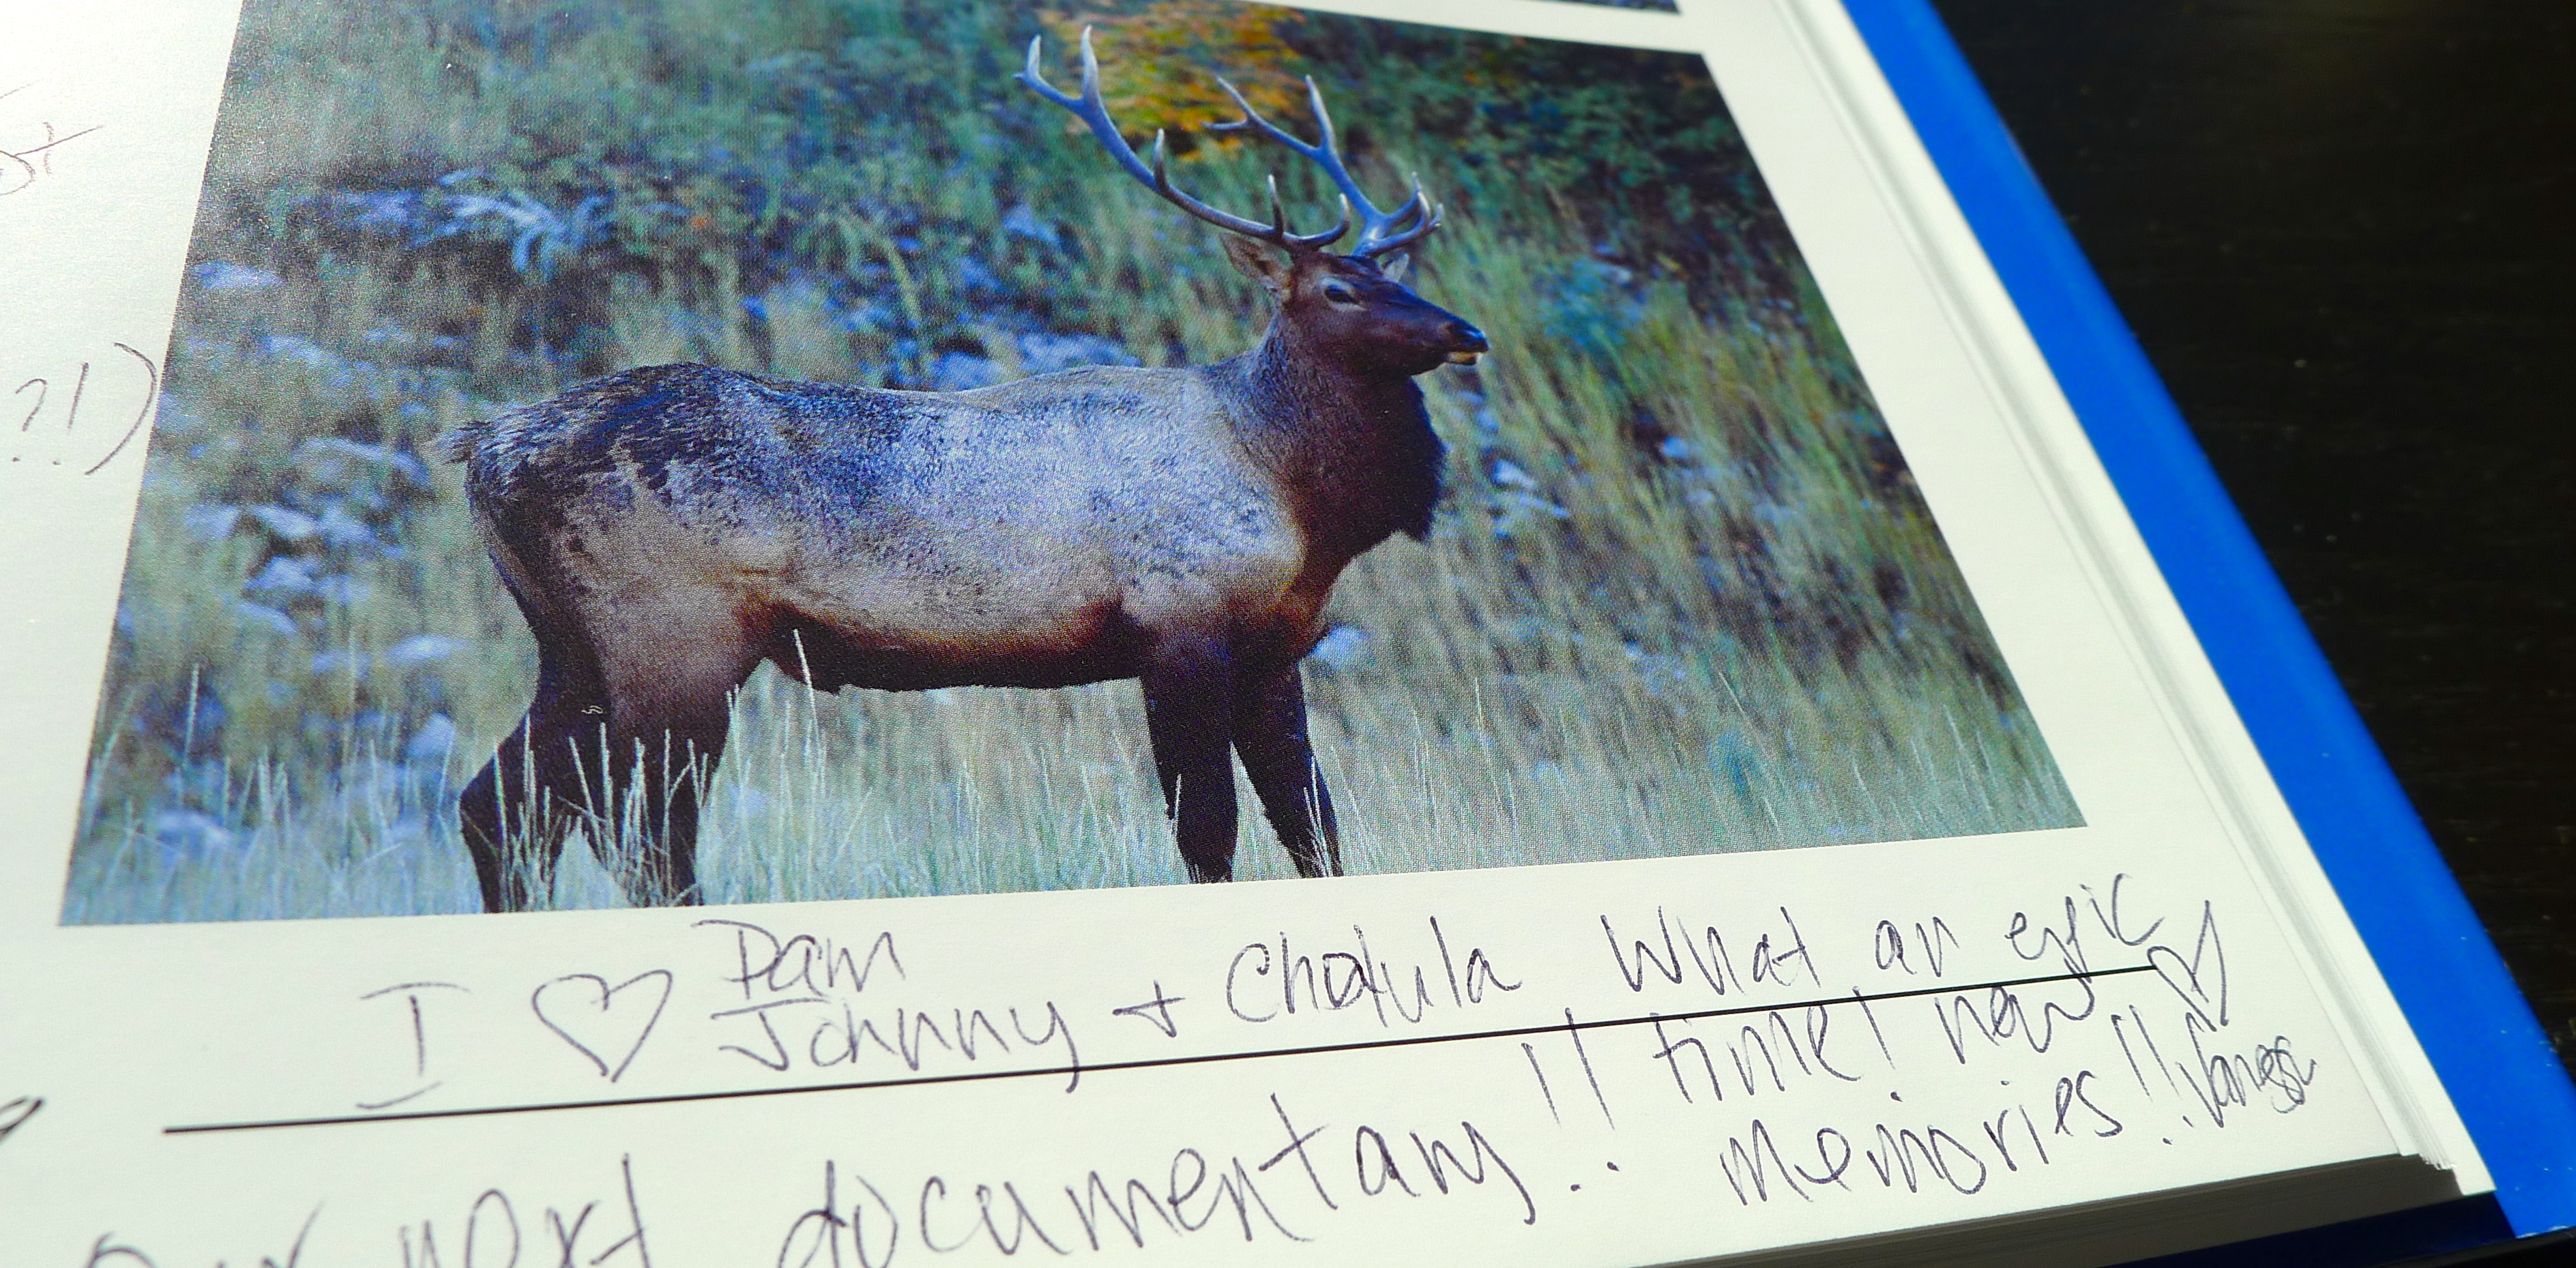 ?!)
I ♡ Pam
Johnny + Cholula What an epic
time! new
memories!! Vanessa
our next documentary!!